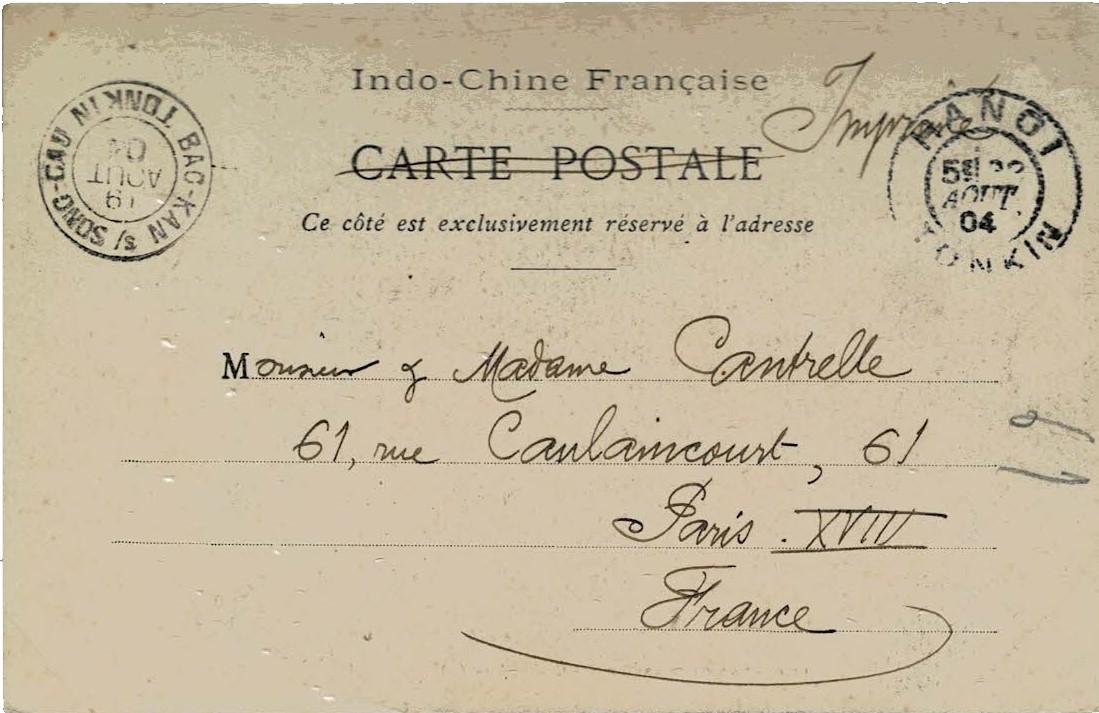 Indo-Chine Française
Imprimé
CARTE POSTALE
Ce côté est exclusivement réservé à l'adresse
BAC-KAN s/ SONG-CAU TONKIN
19
AOUT
04
HANOI
5E
AOUT
04
TONKIN
Monsieur & Madame Cantrelle
61, rue Caulaincourt, 61
Paris. XVIII
France
19